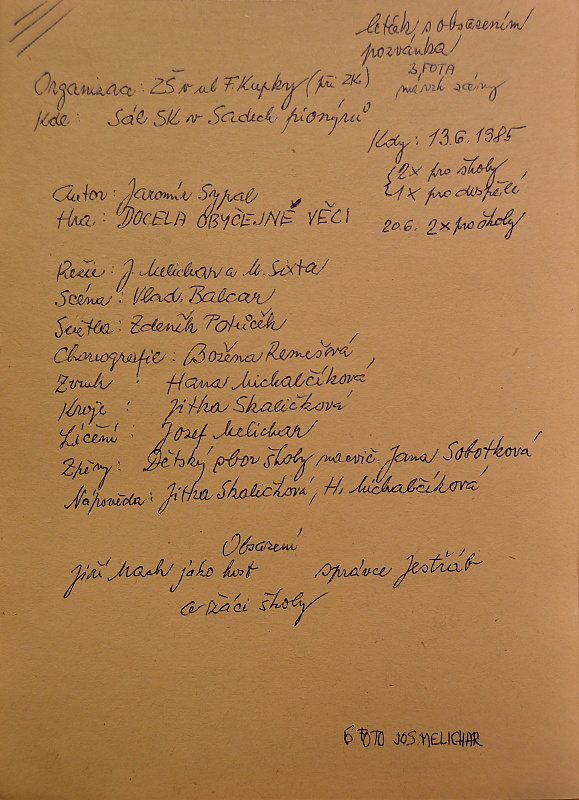 leták s obsazením
pozvánka
3 FOTA
návrh scény
Organizace: ZŠ v ul F. Kupky (při ZK)
Kde: Sál SK v Sadech pionýrů
Kdy: 13.6.1985
2x pro školy
1x pro dospělé
20.6. 2x pro školy
Autor: Jaromír Sypal
Hra: DOCELA OBYČEJNÉ VĚCI
Režie: J. Melichar a M. Sixta
Scéna: Vlad. Balcar
Světla: Zdeněk Potůček
Choreografie: Božena Remešová
Zvuk: Hana Michalčíková
Kroje: Jitka Skaličková
Líčení: Jozef Melichar
Zpěvy: Dětský sbor školy nacvič. Jana Sobotková
Nápověda: Jitka Skaličková, H. Michalčíková
Obsazení
Jiří Mach jako host správce Jestřáb
a žáci školy
6 FOTO JOS. MELICHAR